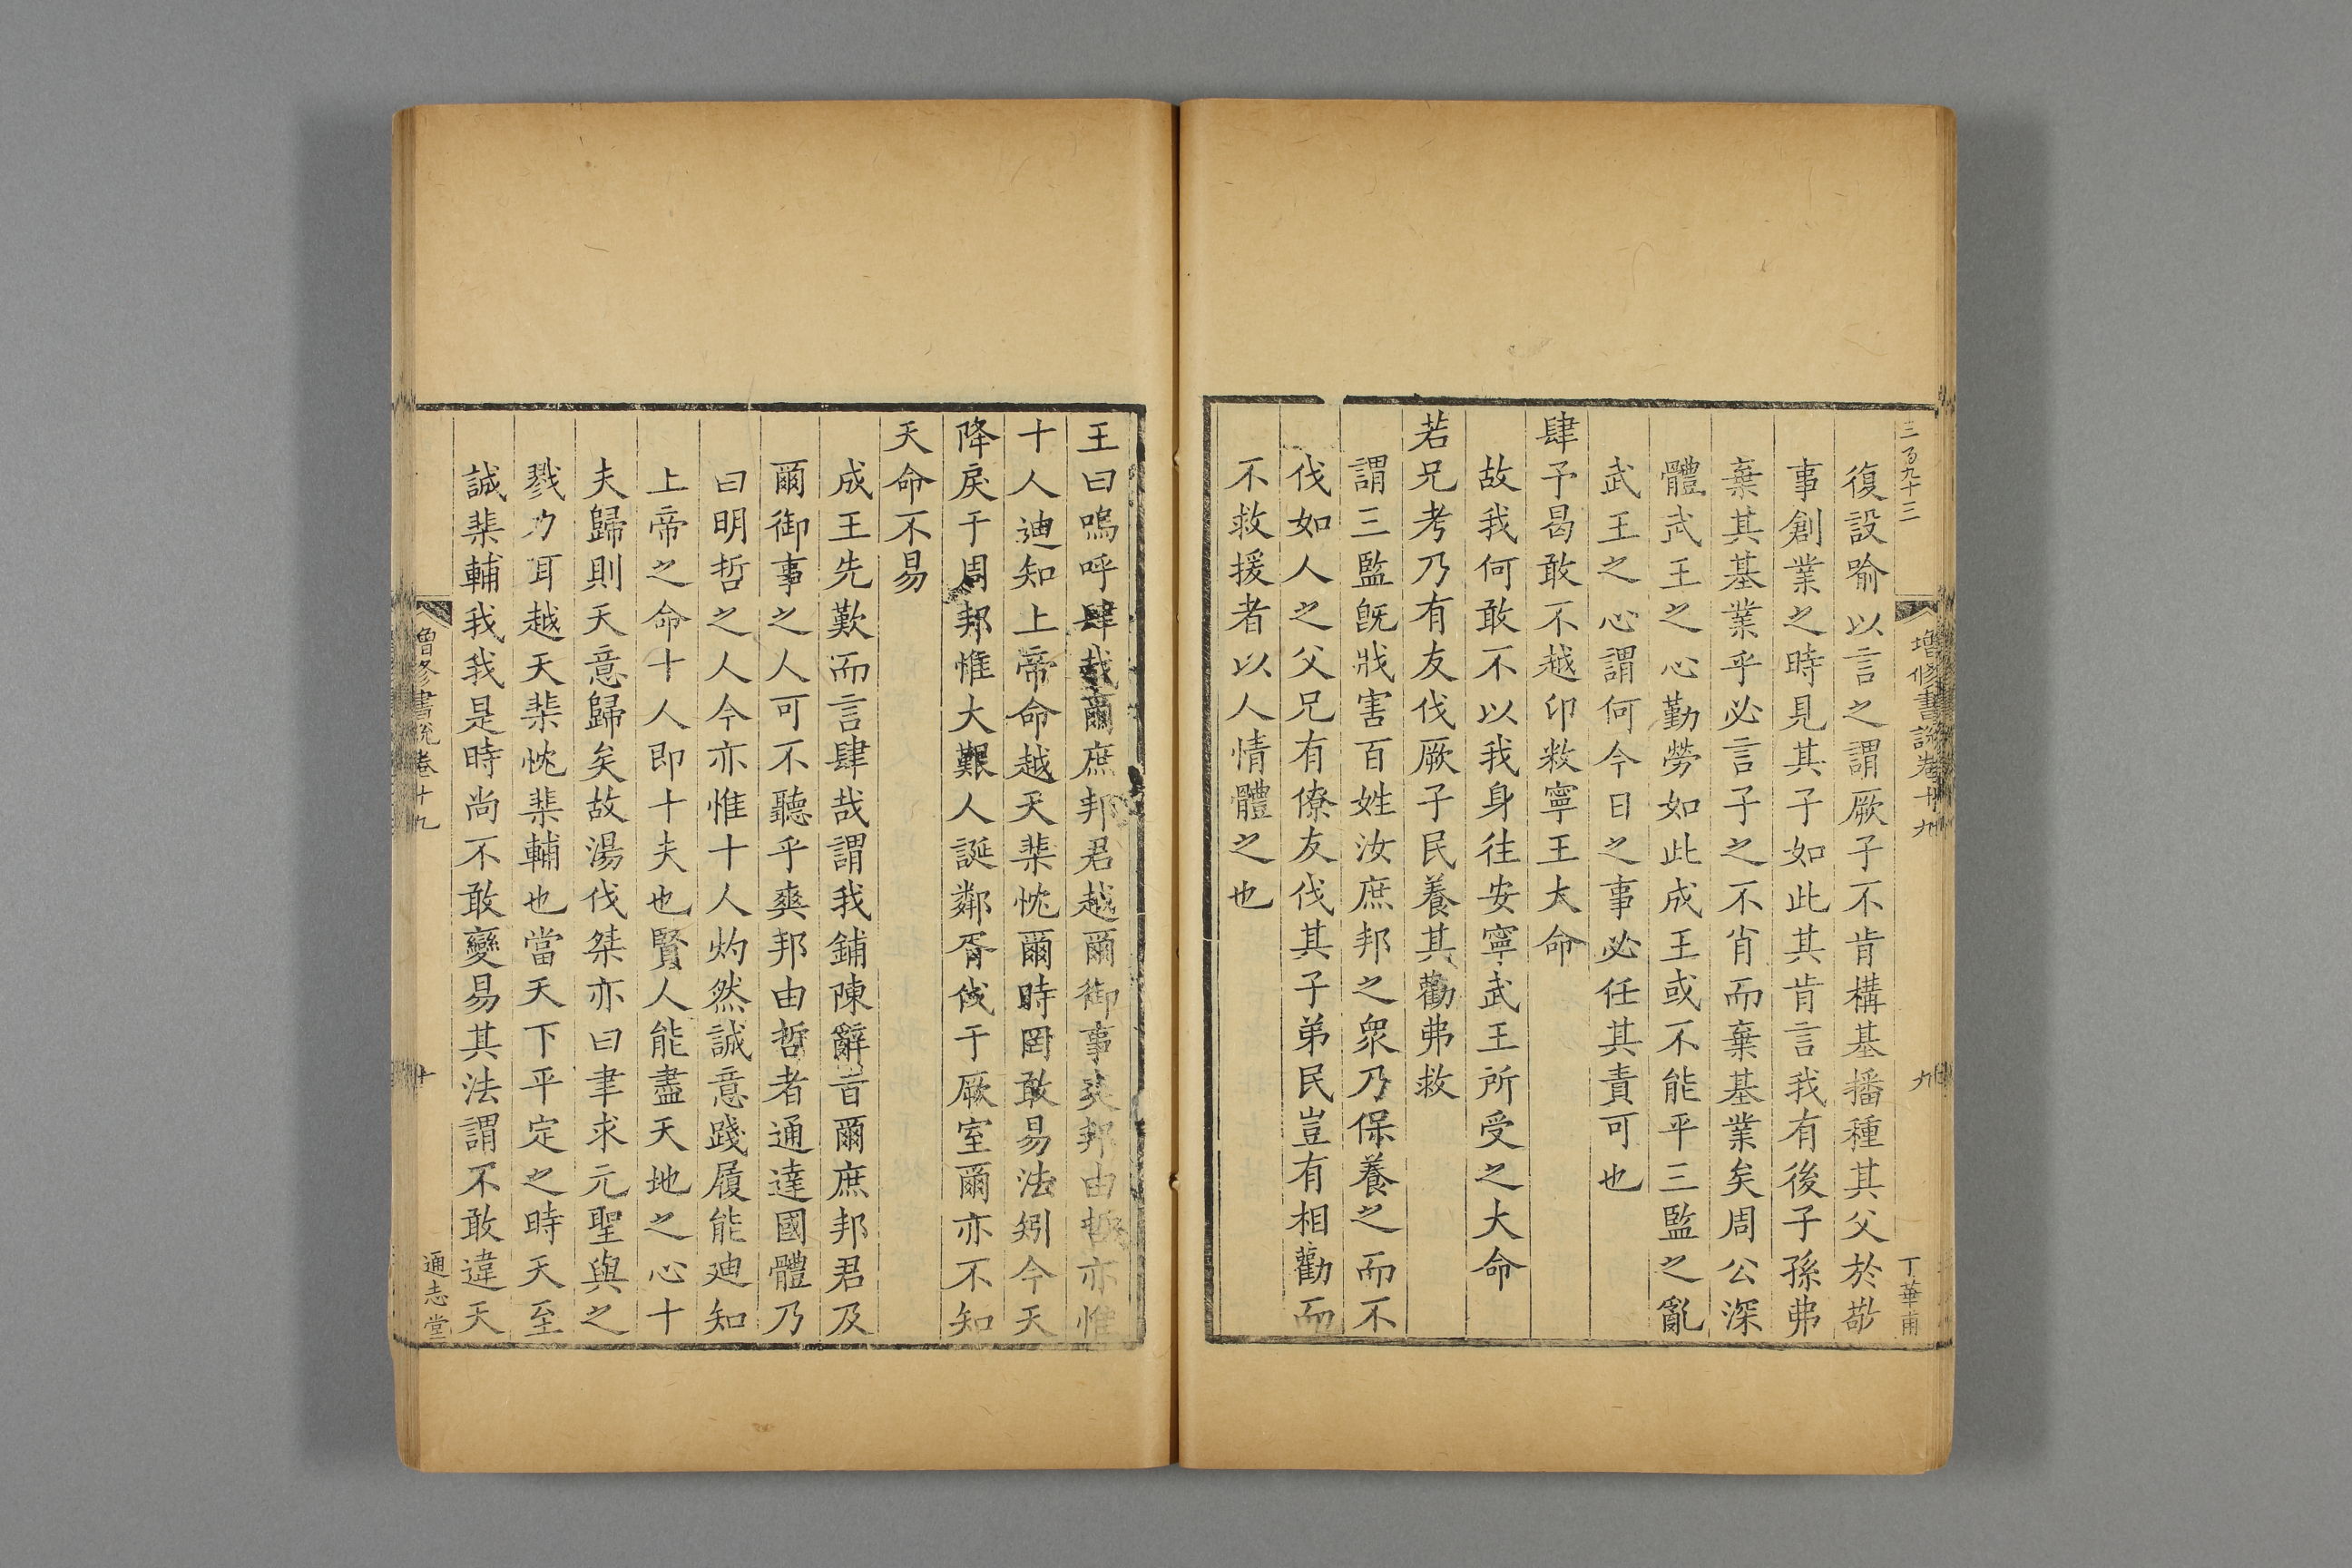 三百九十三
增修書說卷十九
九
丁華甫
復設喻以言之謂厥子不肯構基播種其父於菑
事創業之時見其子如此其肯言我有後子孫弗
棄其基業乎必言子之不肖而棄基業矣周公深
體武王之心勤勞如此成王或不能平三監之亂
武王之心謂何今日之事必任其責可也
肆予曷敢不越卬敉寧王大命
故我何敢不以我身往安寧武王所受之大命
若兄考乃有友伐厥子民養其勸弗救
謂三監旣戕害百姓汝庶邦之衆乃保養之而不
伐如人之父兄有僚友伐其子弟民豈有相勸而
不救援者以人情體之也
王曰嗚呼肆哉爾庶邦君越爾御事爽邦由哲亦惟
十人迪知上帝命越天棐忱爾時罔敢易法矧今天
降戾于周邦惟大艱人誕鄰胥伐于厥室爾亦不知
天命不易
成王先歎而言肆哉謂我鋪陳辭旨爾庶邦君及
爾御事之人可不聽乎爽邦由哲者通達國體乃
曰明哲之人今亦惟十人灼然誠意踐履能迪知
上帝之命十人即十夫也賢人能盡天地之心十
夫歸則天意歸矣故湯伐桀亦曰聿求元聖與之
戮力耳越天棐忱棐輔也當天下平定之時天至
誠棐輔我我是時尚不敢變易其法謂不敢違天
增修書說卷十九
十
通志堂